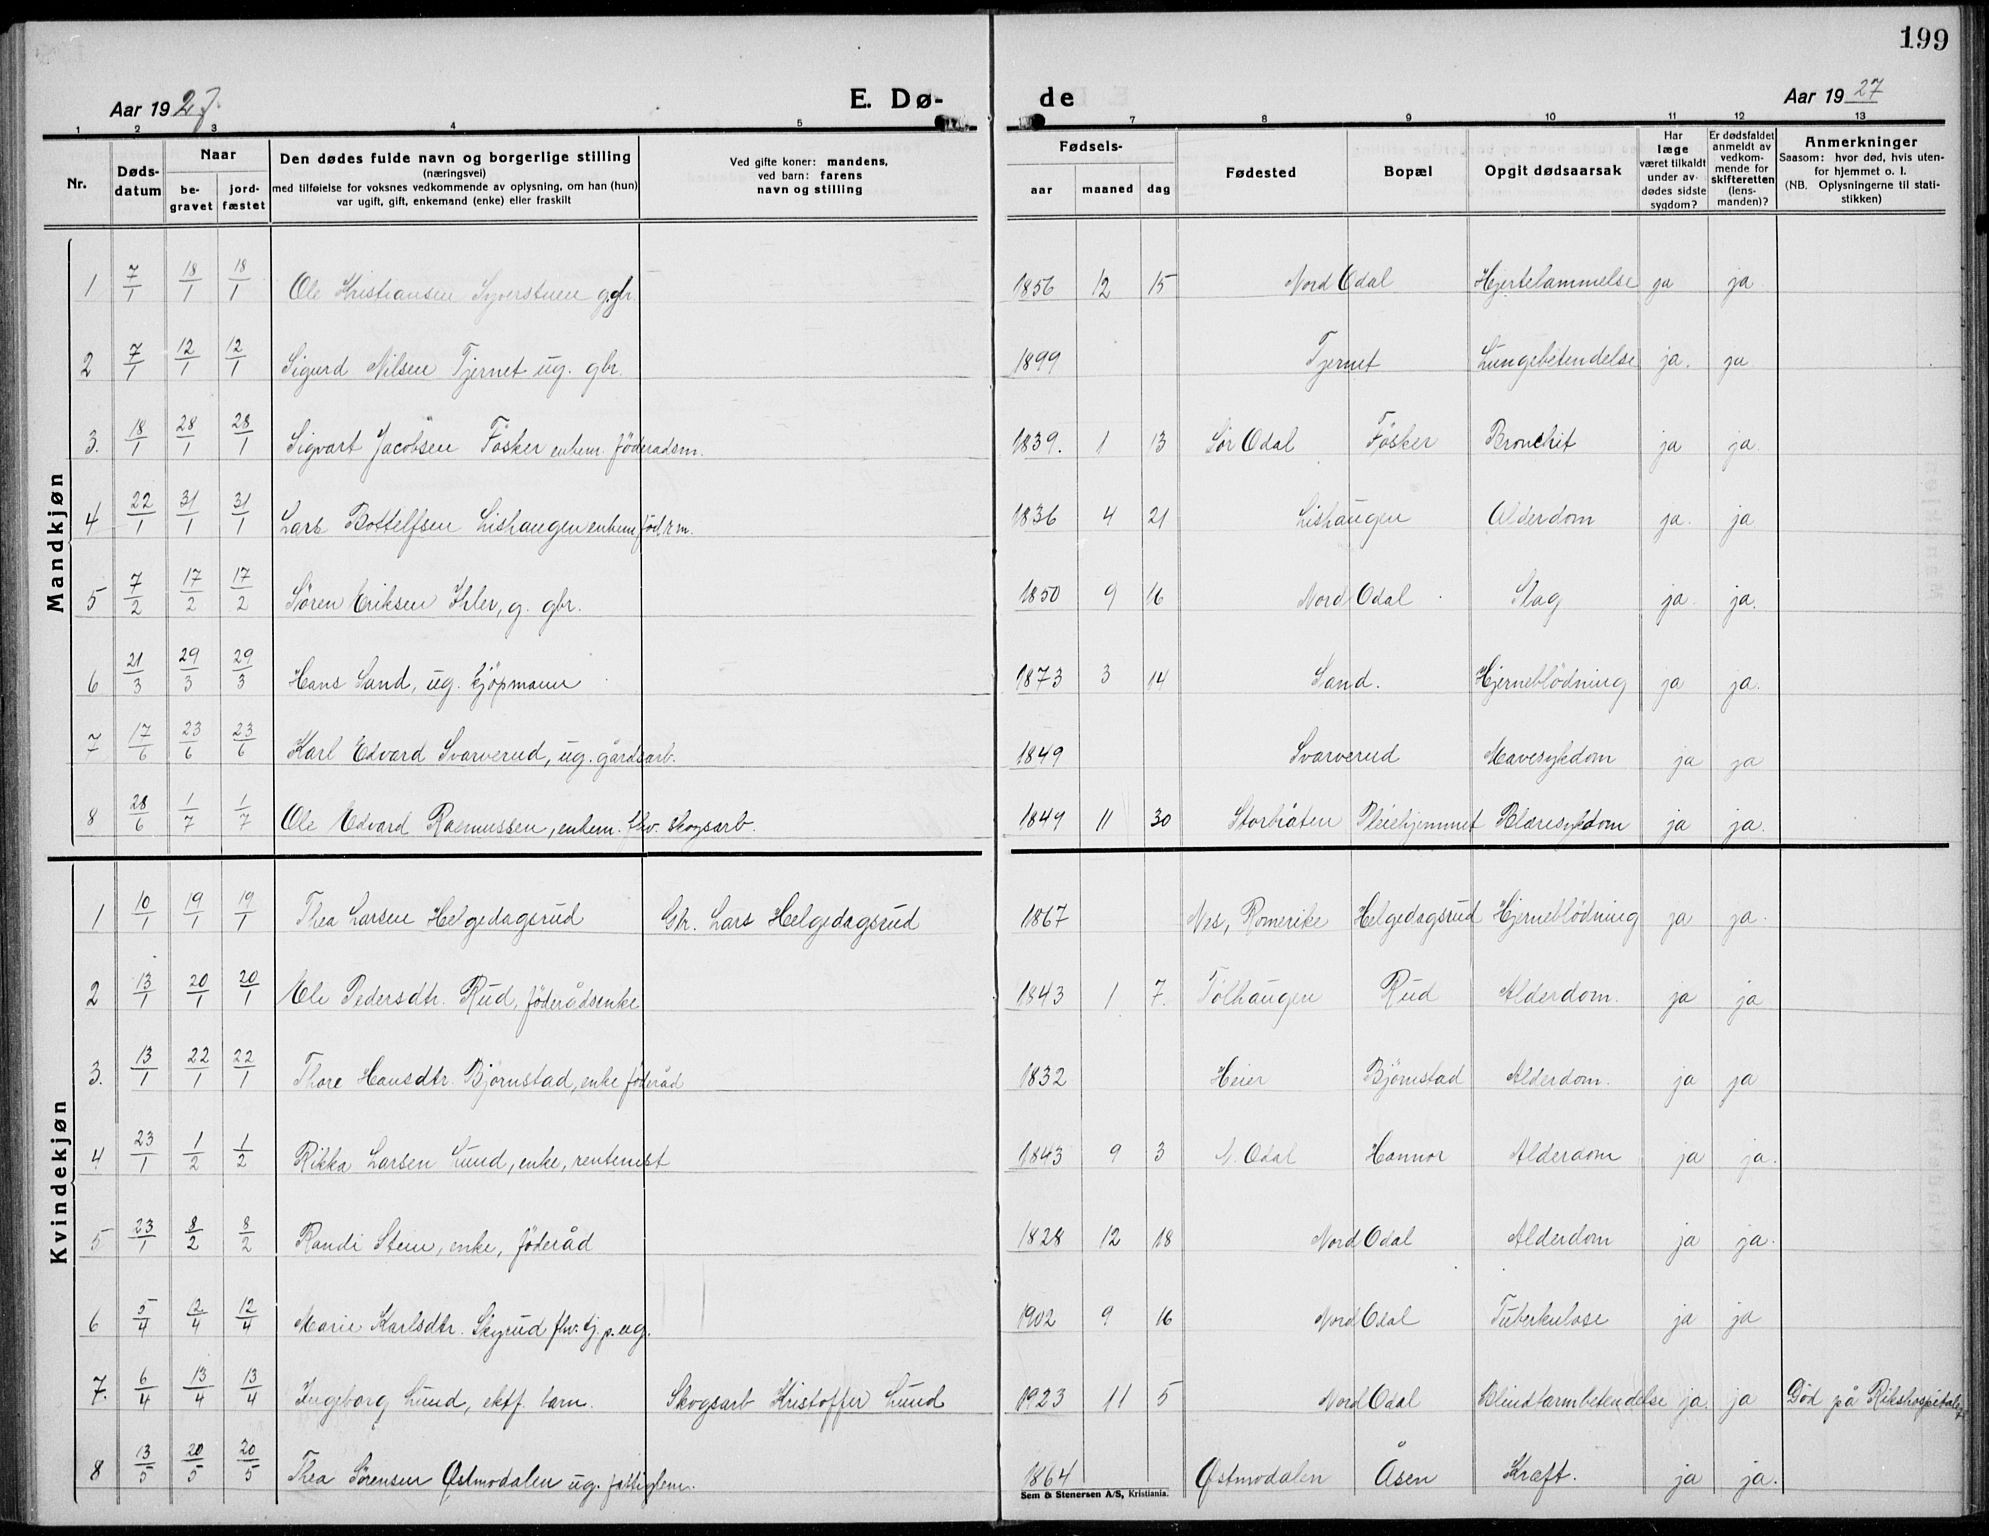 199
Aar 1927. E. Dø- de Aar 1927
1 2 3 4 5 7 8 9 10 11 12 13
Nr. Døds-datum Naar be-gravet jord-fæstet Den dødes fulde navn og borgerlige stilling (næringsvei) med tilføielse for voksnes vedkommende av oplysning, om han (hun) var ugift, gift, enkemand (enke) eller fraskilt Ved gifte koner: mandens, ved barn: farens navn og stilling Fødsels- aar maaned dag Fødested Bopæl Opgit dødsaarsak Har læge været tilkaldt under av-dødes sidste sygdom? Er dødsfaldet anmeldt av vedkom-mende for skifteretten (lens-manden)? Anmerkninger Saasom: hvor død, hvis uten-for hjemmet o. l. (NB. Oplysningerne til stati-stikken)
Mandkjøn
1 7/1 18/1 18/1 Ole Kristiansen Syverstuen g.gbr. 1856 12 15 Nord Odal Hjertelammelse ja ja
2 7/1 12/1 12/1 Sigurd Nilsen Tjernet ug. gbr. 1899 Tjernet Lungebetendelse ja. ja
3. 18/1 28/1 28/1 Sigvart Jacobsen Fosker enkem. föderadsm. 1839. 1 13 Sör Odal Fosker Bronchit ja ja.
4 22/1 31/1 31/1 Lars Bottelfsen Lishaugen enkem. 1836 4 21 Lishaugen Alderdom ja. ja
5 7/2 17/2 17/2 Sören Eriksen Kler, g. gbr. 1850 9 16 Nord Odal Slag ja. ja.
6 21/3 29/3 29/3 Hans Sand, ug. kjöpmann 1873 3 14 Sand. Hjerneblödning ja ja.
7 17/6 23/6 23/6 Karl Edvard Svarverud, ug. gårdsarb. 1849 Svarverud Mavesykdom ja ja
8 28/6 1/7 1/7 Ole Edvard Rasmussen, enkem. fhv. skogsarb. 1849 11 30 Storbråten Pleiehjemmet Blæresykdom ja ja.
Kvindekjøn
1 10/1 19/1 19/1 Thea Larsen Helgedagsrud Gbr. Lars Helgedagsrud 1867 Nes, Romerike Helgedagsrud Hjerneblödning ja ja.
2 13/1 20/1 20/1 Eli Pedersdtr. Rud, föderådsenke 1843 1 7. Tolhaugen Rud Alderdom. ja ja
3. 13/1 22/1 22/1 Thore Hansdtr. Björnstad, enke föderåd 1832 Heier Björnstad Alderdom. ja ja
4 23/1 1/2 1/2 Rikka Larsen Lund, enke, rentenist 1843 9 3 N. Odal Hannor Alderdom ja ja.
5 23/1 8/2 8/2 Randi Stein, enke, föderåd 1828 12 18 Nord Odal Alderdom ja ja.
6 5/4 12/4 12/4 Marie Karlsdtr. Skyrud fhv. tj.p. ug. 1902 9 16 Nord Odal Tuberkulose ja ja
7. 6/4 13/4 13/4 Ingeborg Lund, ektf. barn. Skogsarb Kristoffer Lund 1923 11 5 Nord Odal Blindtarmbetendelse ja. ja Död på Rikshospitalet
8 13/5 20/5 20/5 Thea Sörensen Østmodalen ug. fattiglem. 1864 Østmodalen Åsen Kræft. ja ja.
Sem & Stenersen A/S, Kristiania.